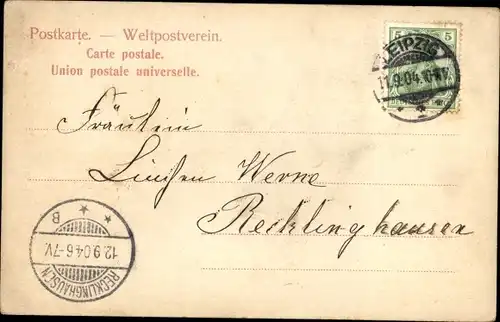 Postkarte. — Weltpostverein.
Carte postale.
Union postale universelle.
5 5
LEIPZIG
11.9.04.
Fräulein
Linchen Werne
Recklinghausen
B
12.9.04.6-7V.
RECKLINGHAUSEN